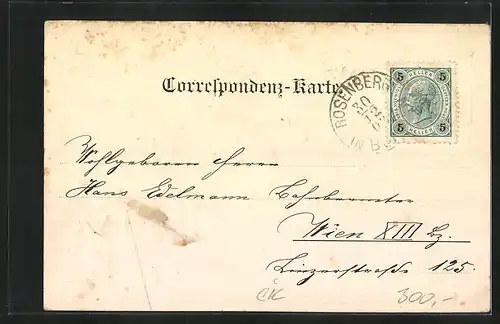 Correspondenz-Karte
ROSENBERG IN B
30
5 HELLER 5
5 HELLER 5
Wohlgeboren Herrn
Hans Edelmann Bahnbeamter
Wien XIII Bz.
Linzerstraße 125.
ČK 300,-